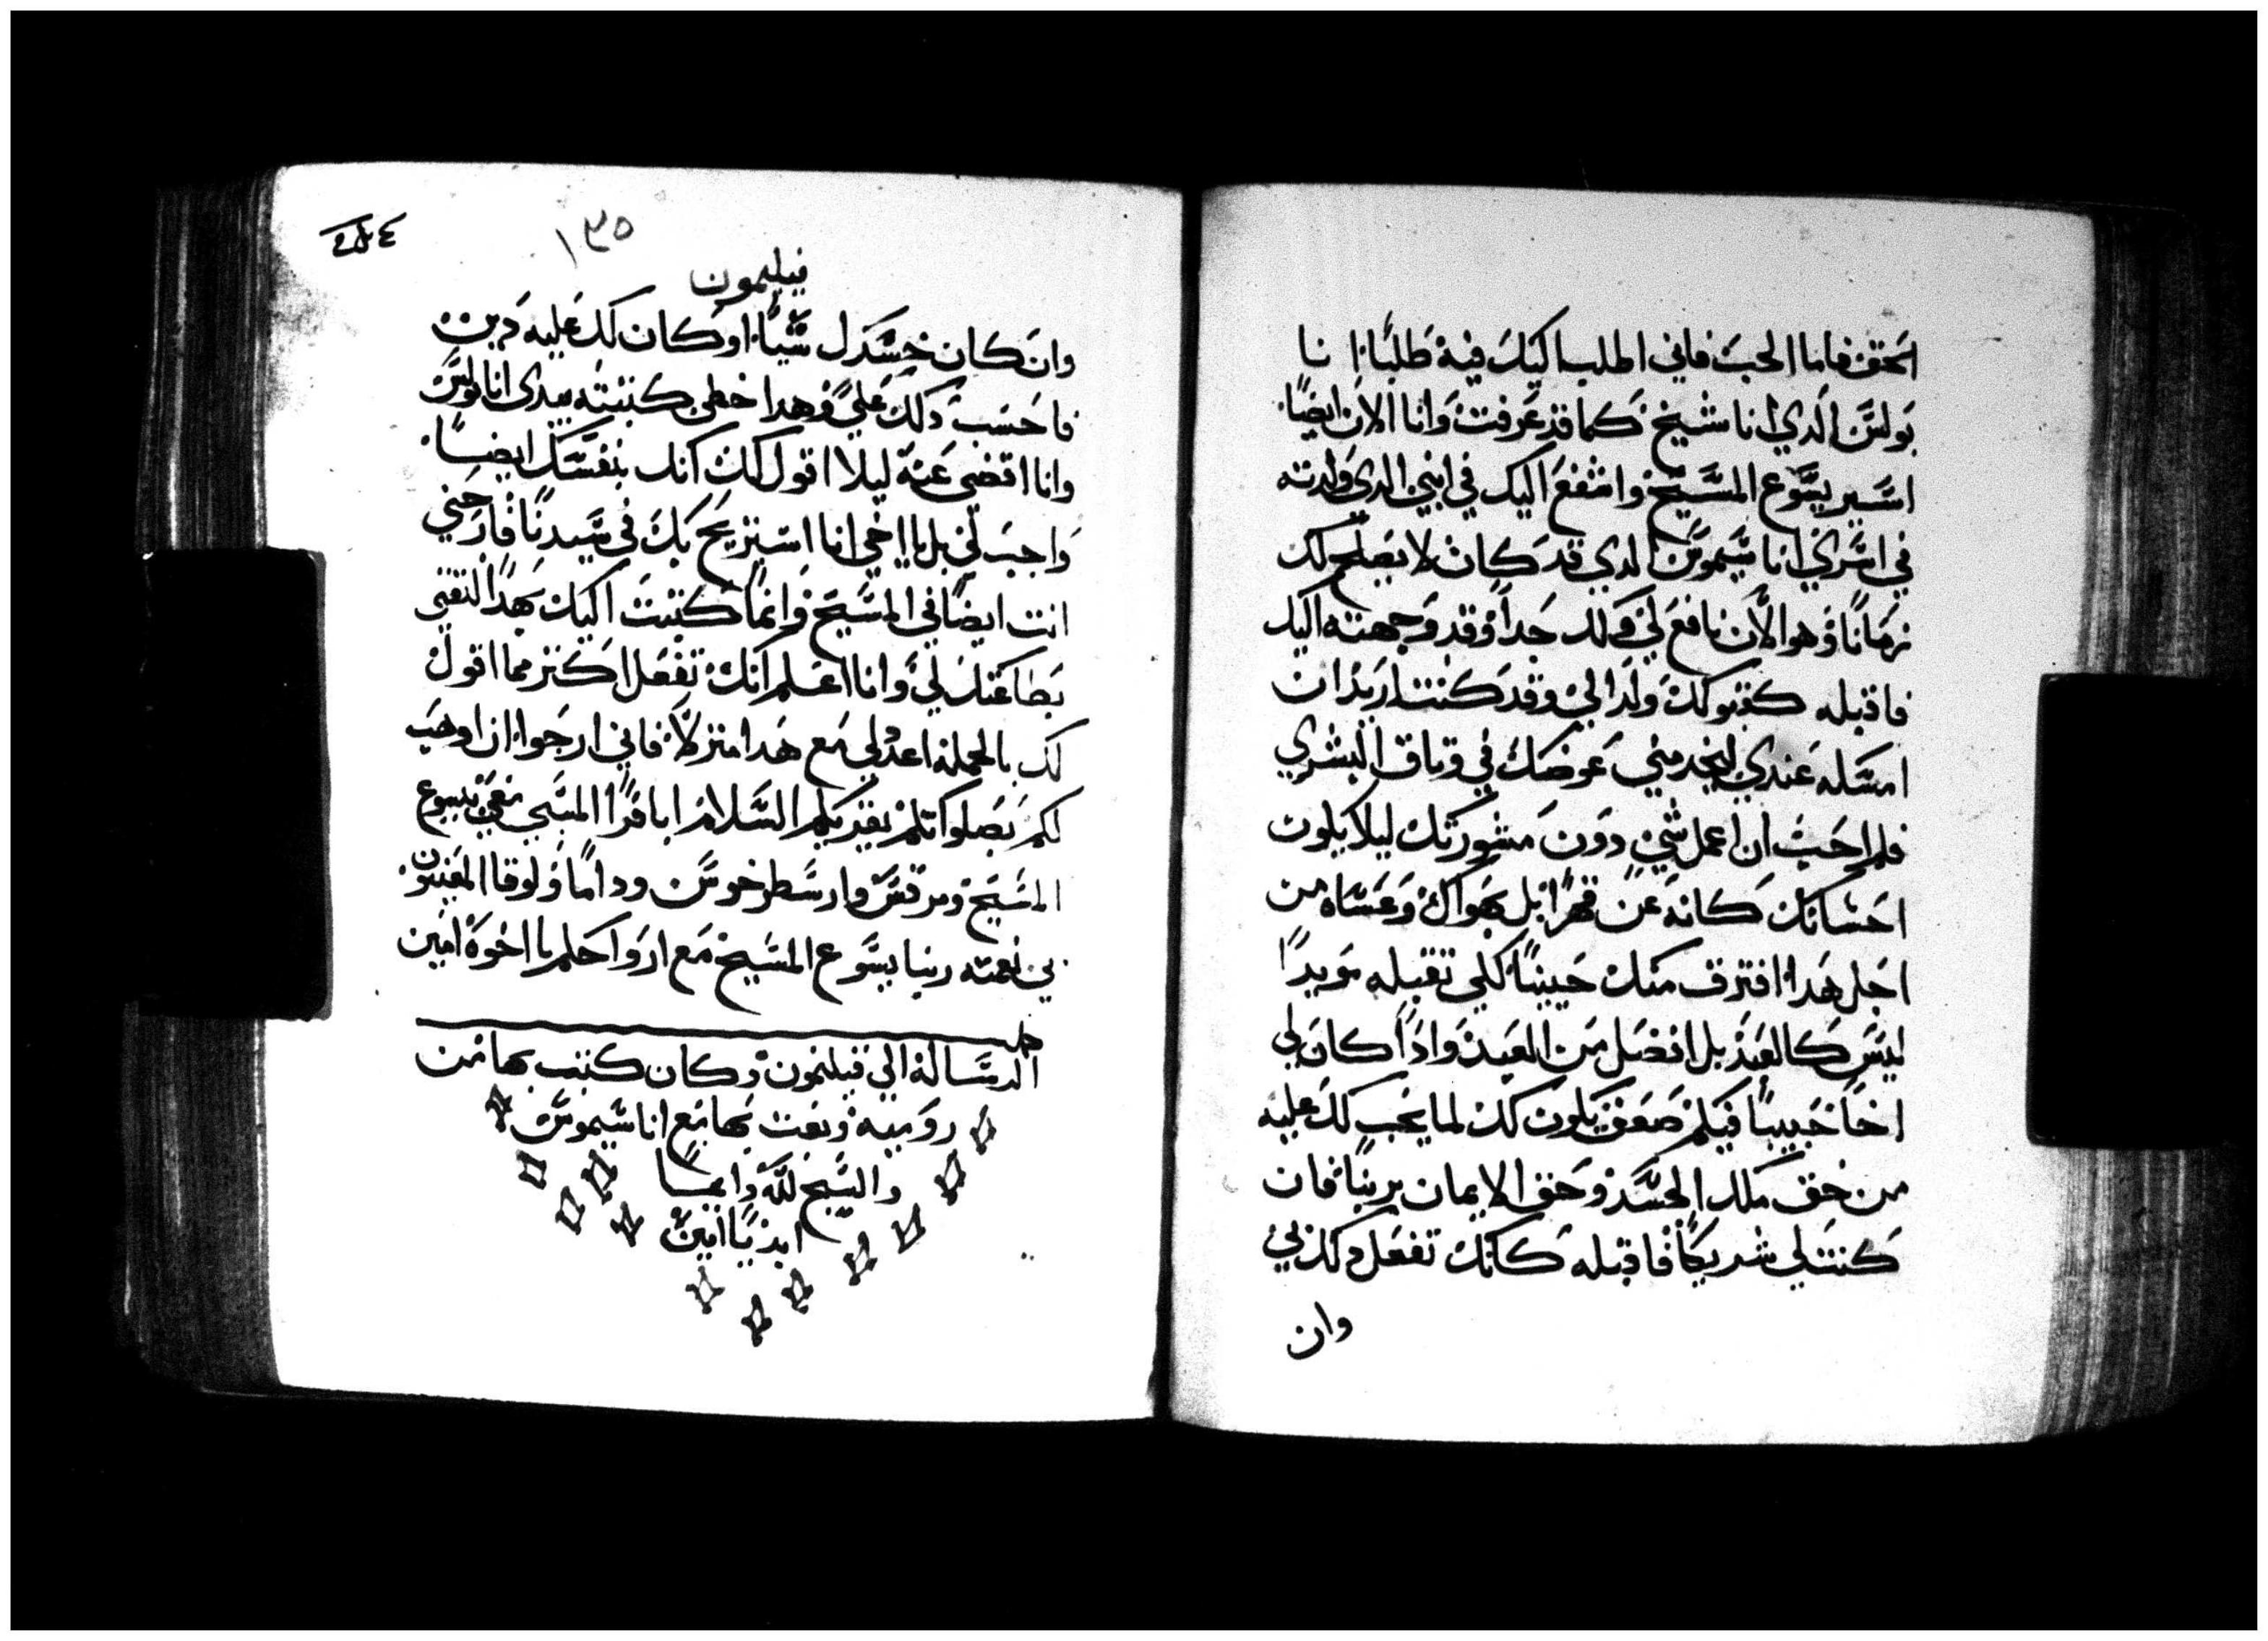 الحق فاما الحب فاني اطلب اليك فيه طلبا انا
بولس الدي انا شيخ كما قد عرفت وانا الان ايضا
اسير يسوع المسيح واشفع اليك في ابني الدي ولدته
في اسري اناسيموس الدي قد كان لا يصلح لك
زمانا وهو الان نافع لي ولك جدا وقد وجهته اليك
فاقبله كقبولك ولدا لي وقد كنت اريد ان
امسكه عندي ليخدمني عوضك في وثاق البشري
فلم احب ان اعمل شي دون مشورتك ليلا يكون
احسانك كانه عن قهرا بل بهواك وعساه من
اجل هدا افترق منك حينا لكي تقبله موبدا
ليس كالعبد بل افضل من العبيد وادا كان لي
اخا حبيبا فبكم ضعف يكون لك لما يجب لك عليه
من حق ملك الجسد وحق الايمان بربنا فان
كنت لي شريكا فاقبله كانك تفعل دلك بي
وان
٤٥٤
١٣٥
فيليمون
وان كان خسرك شيا او كان لك عليه دين
فاحسب دلك علي وهدا خطي كتبته بيدي انا بولس
وانا اقضي عنه ليلا اقول لك انك بنفسك ايضا
واجب لي بل يا اخي انا استريح بك في سيدنا فارحني
انت ايضا في المسيح وانما كتبت اليك بهدا لثقتي
بطاعتك لي وانا اعلم انك تفعل اكتر مما اقول
لك بالجملة اعد لي مع هدا منزلا فاني ارجوا ان اوهب
لكم بصلواتكم يقريكم السلام ابافرا المسبي معي بيسوع
المسيح ومرقس وارسطرخوس وداما ولوقا المعينون
بي نعمة ربنا يسوع المسيح مع ارواحكم يا اخوة امين
الرسالة الي فيليمون وكان كتب بها من
رومية وبعت بها مع اناسيموس
والسبح لله دايما
ابديا امين